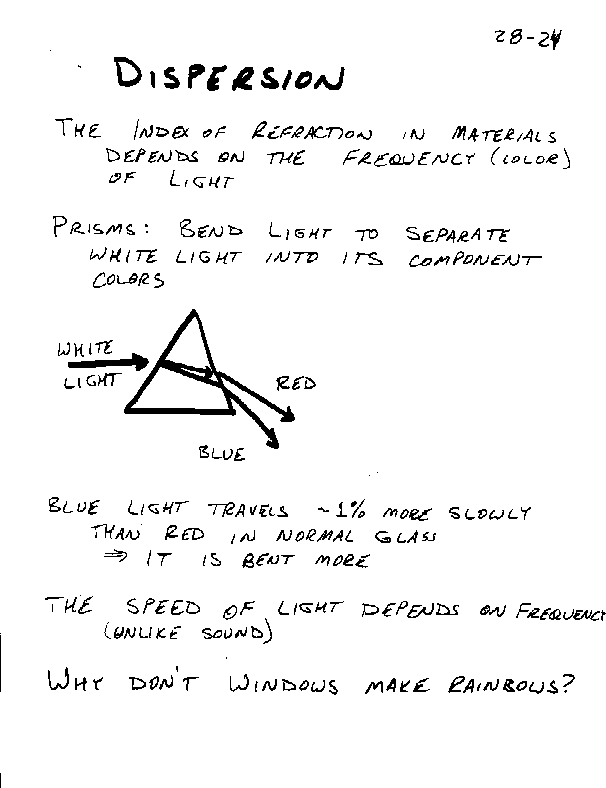 28-24
DISPERSION
THE INDEX OF REFRACTION IN MATERIALS
DEPENDS ON THE FREQUENCY (COLOR)
OF LIGHT
PRISMS: BEND LIGHT TO SEPARATE
WHITE LIGHT INTO ITS COMPONENT
COLORS
WHITE
LIGHT
RED
BLUE
BLUE LIGHT TRAVELS ~1% MORE SLOWLY
THAN RED IN NORMAL GLASS
⇒ IT IS BENT MORE
THE SPEED OF LIGHT DEPENDS ON FREQUENCY
(UNLIKE SOUND)
WHY DON'T WINDOWS MAKE RAINBOWS?